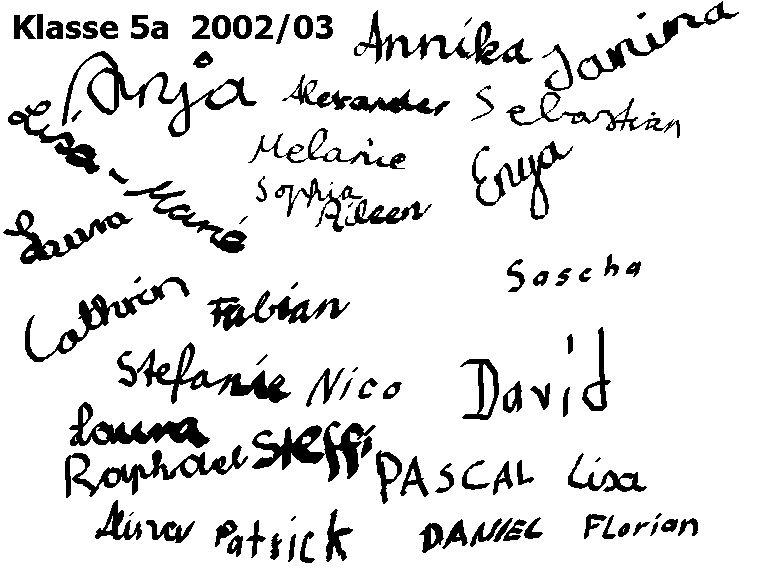 Klasse 5a 2002/03
Annika Janina
Anja Alexander Sebastian
Lisa-Marie Melanie Enya
Sophia Aileen
Laura
Sascha
Cathrin Fabian
Stefanie Nico David
Laura
Raphael Steffi PASCAL Lisa
Patrick DANIEL Florian